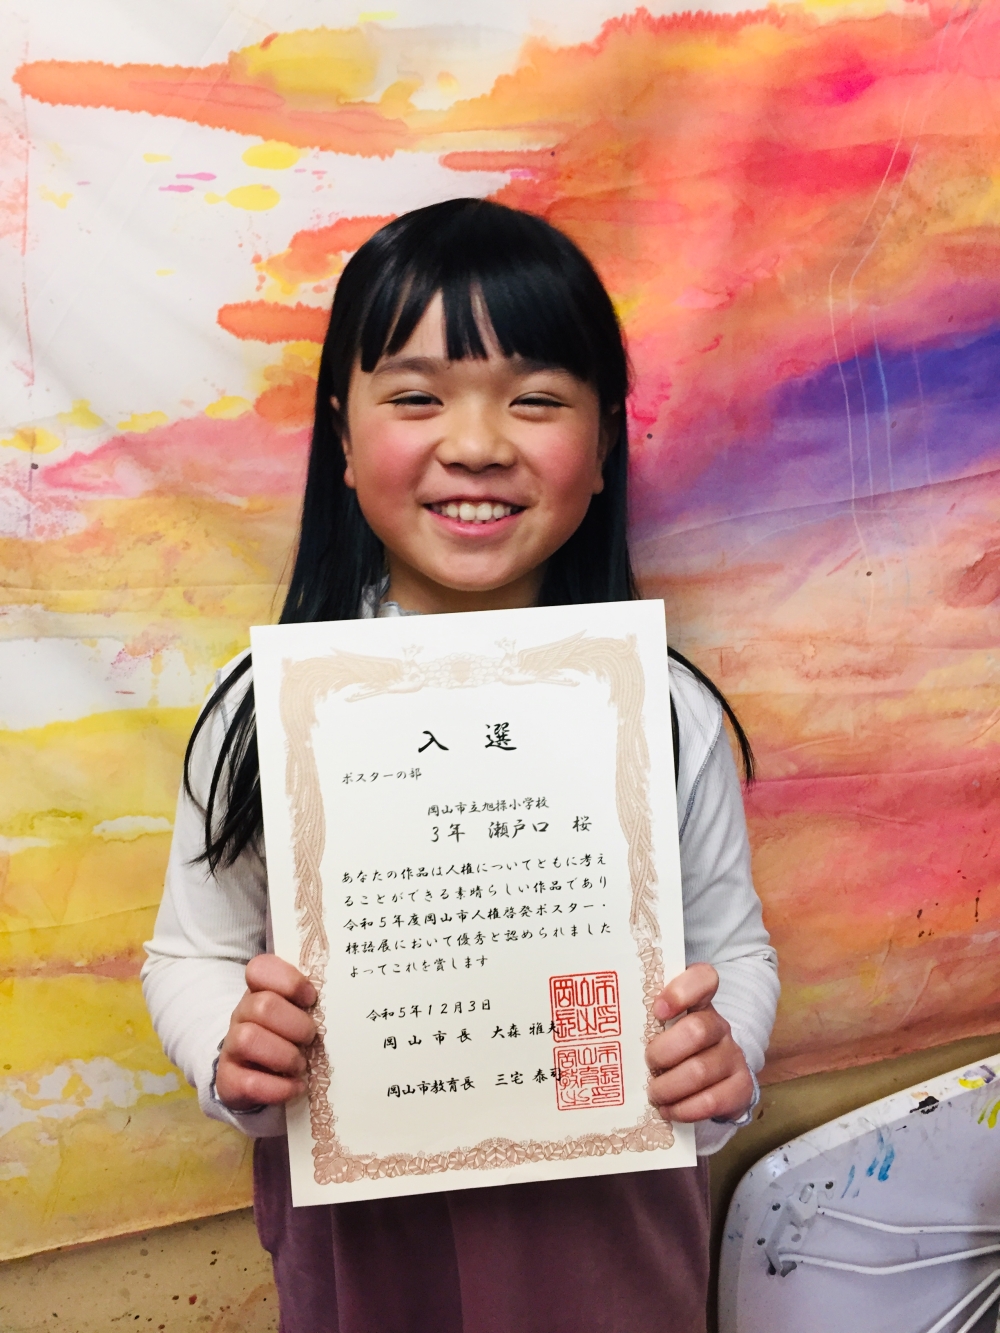 入選
ポスターの部
岡山市立旭操小学校
3年 瀬戸口 桜
あなたの作品は人権についてともに考え
ることができる素晴らしい作品であり
令和5年度岡山市人権啓発ポスター・
標語展において優秀と認められました
よってこれを賞します
令和5年12月3日
岡山市長 大森 雅夫
岡山市教育長 三宅 泰司